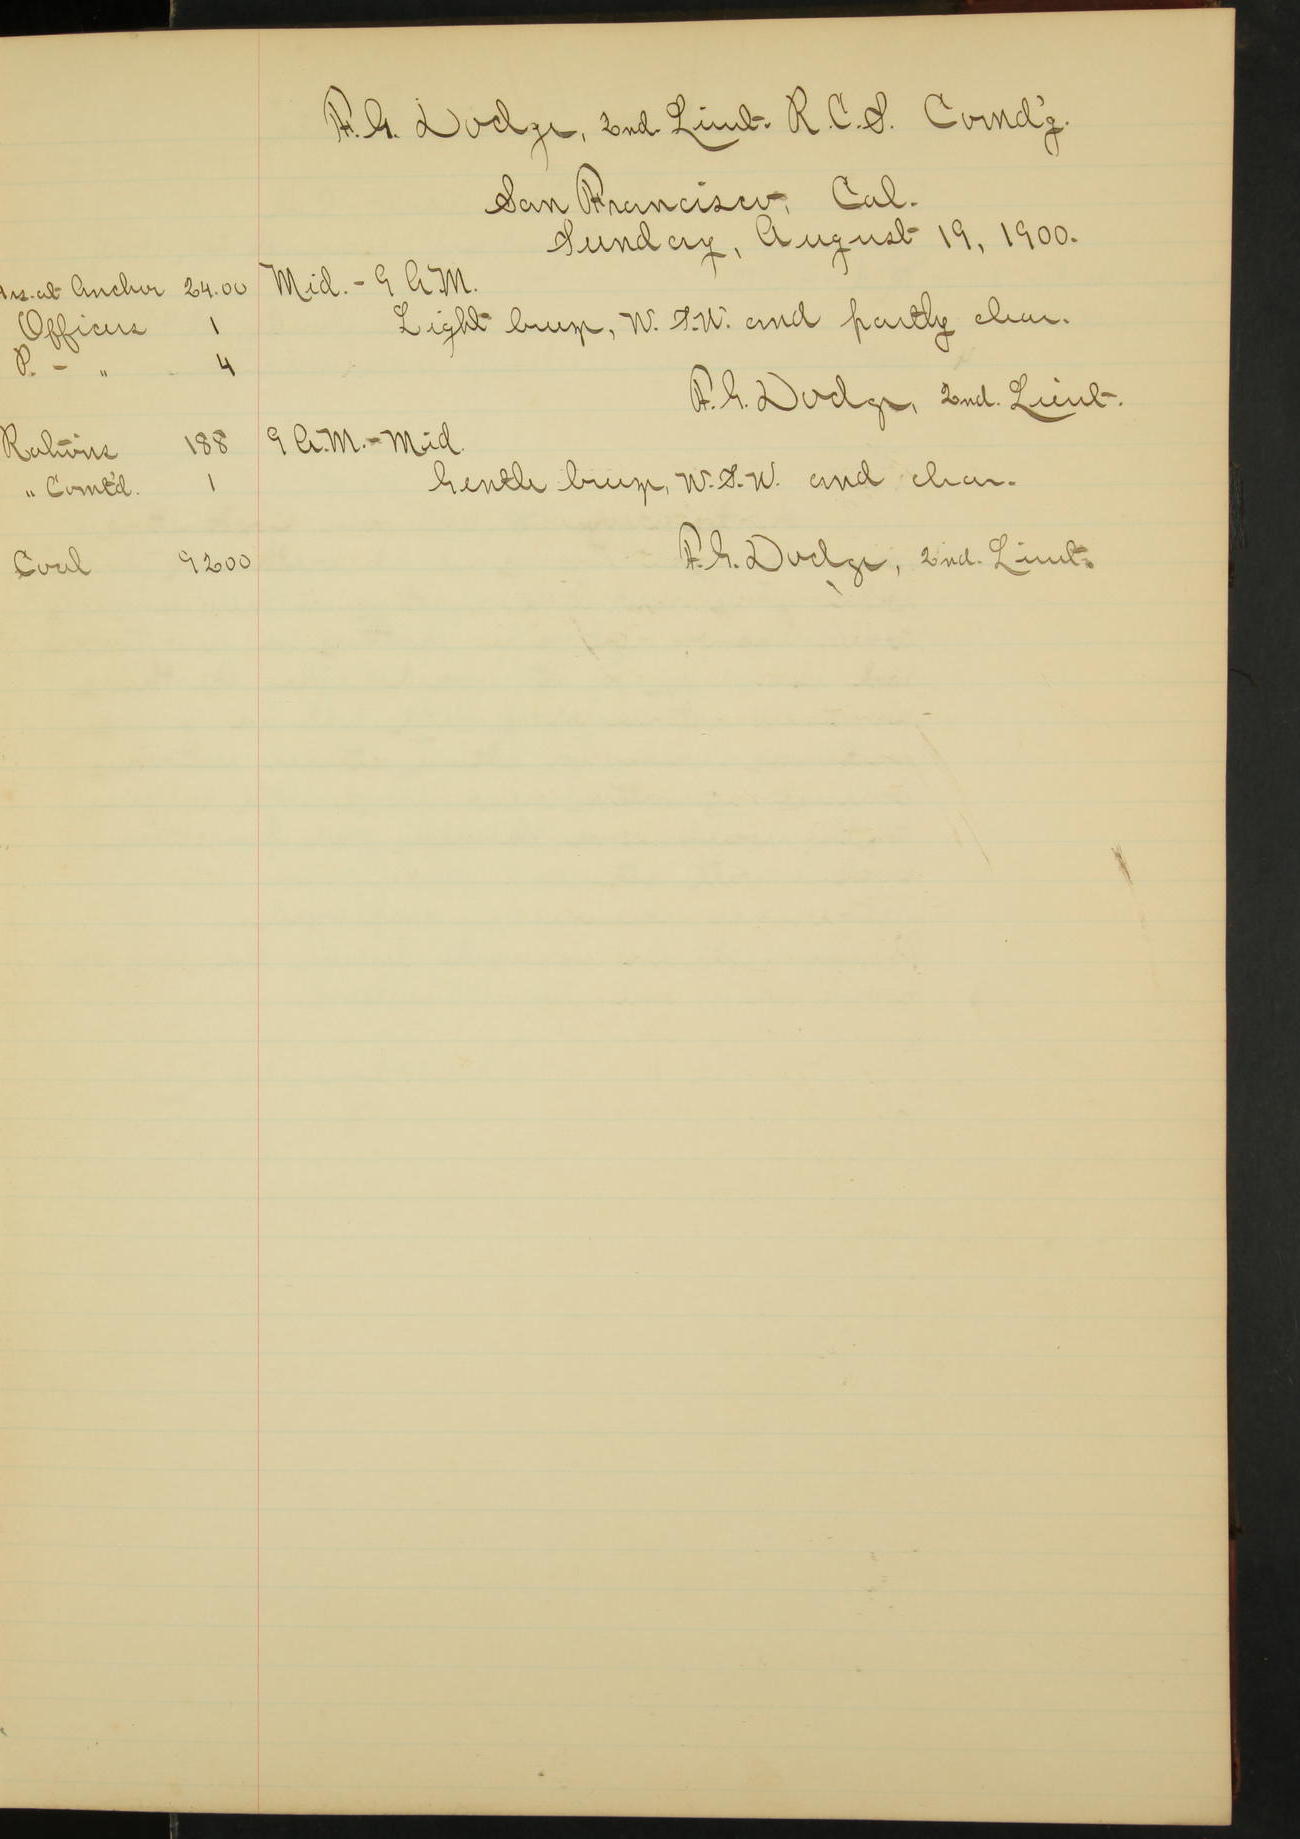 F.G. Dodge, 2nd. Lieut. R.C.S. Comd'g.
San Francisco, Cal.
Sunday, August 19, 1900.
Hrs. at Anchor 24.00 Mid. - 9 A.M.
Officers 1 Light breeze, W.S.W. and partly clear.
P. - " 4
F.G. Dodge, 2nd. Lieut.
Rations 188 9 A.M. - Mid.
" Comt'd. 1 Gentle breeze, W.S.W. and clear.
Coal 9200 F.G. Dodge, 2nd. Lieut.